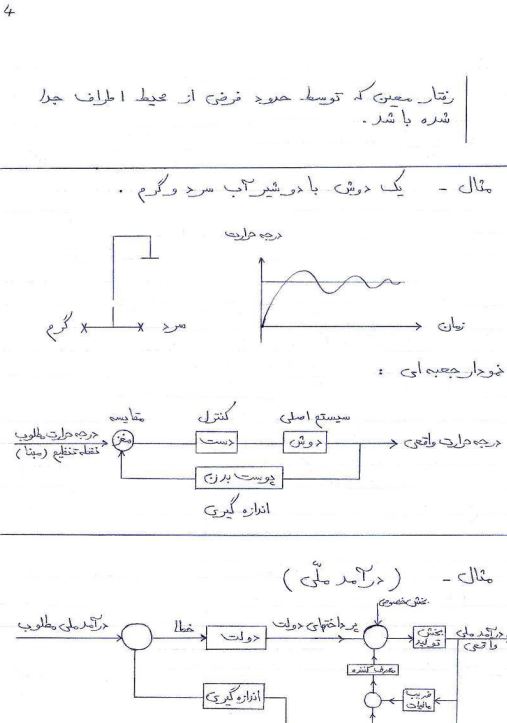 4
رفتار معین که توسط حدود فرضی از محیط اطراف جدا
شده باشد .
مثال - یک دوش با دو شیر آب سرد و گرم .
درجه حرارت
گرم
سرد
زمان
نمودار جعبه ای :
مقایسه
کنترل
سیستم اصلی
درجه حرارت مطلوب
نقطه تنظیم (مبنا)
مغز
دست
دوش
درجه حرارت واقعی
پوست بدن
اندازه گیری
مثال - (درآمد ملّی)
بخش خصوصی
درآمد ملی مطلوب
خطا
دولت
پرداختهای دولت
بخش
تولید
درآمد ملی
واقعی
مصرف کننده
اندازه گیری
ضریب
مالیات